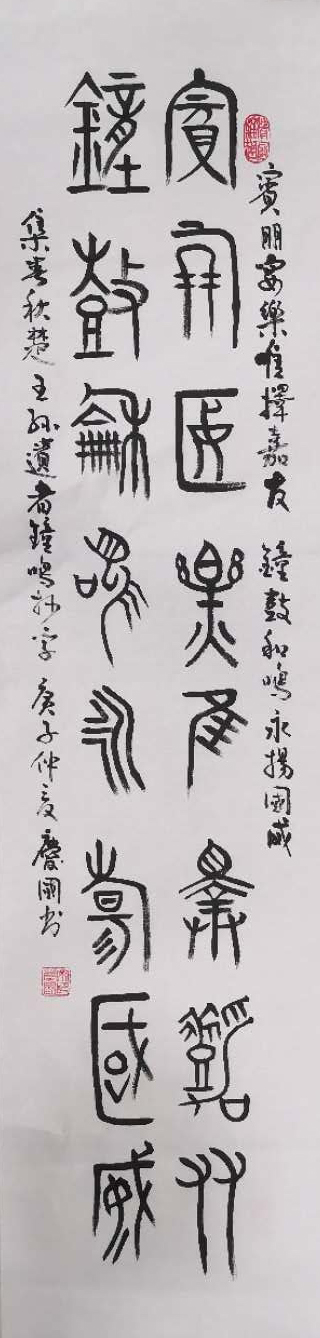 賓朋宴樂隹擇嘉友 鐘鼓和鳴永揚國威
賓朋匽樂隹睪嘉友
鐘鼓龢鳴永昜國威
集春秋楚王孫遺者鐘鳴外字 庚子仲夏 慶國书